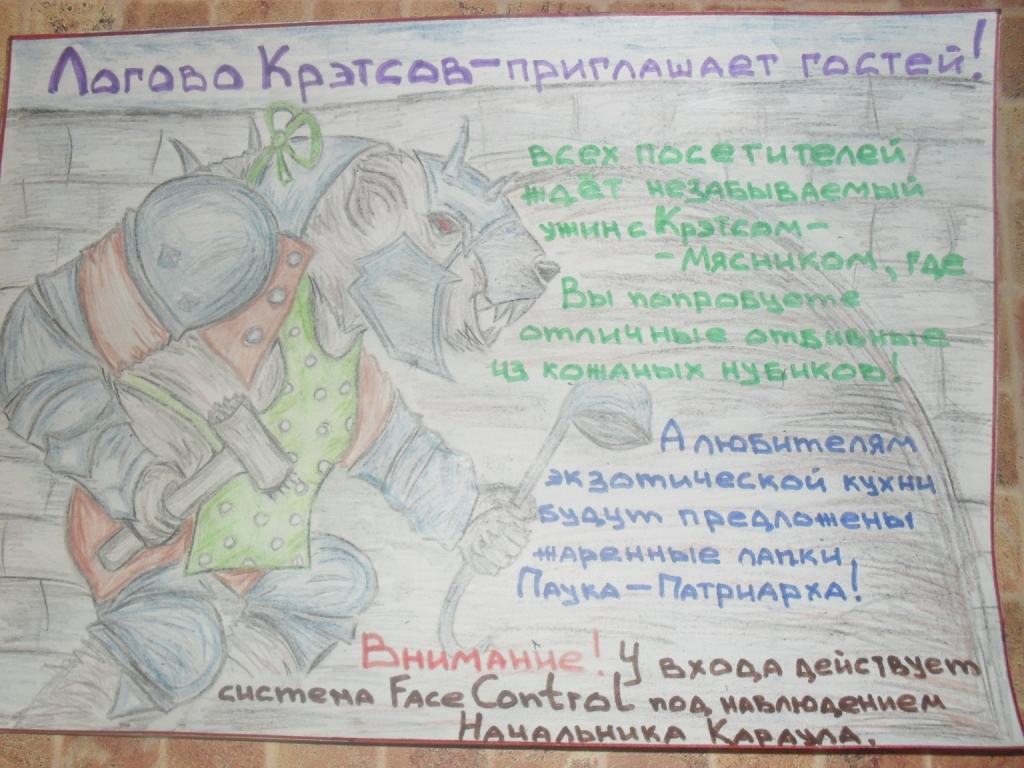 Логово Крэтсов-приглашает гостей!
всех посетителей
ждёт незабываемый
ужин с Крэтсом-
-Мясником, где
Вы попробуете
отличные отбивные
из кожаных нубиков!
А любителям
экзотической кухни
будут предложены
жаренные лапки
Паука-Патриарха!
Внимание! У входа действует
система FaceControl под наблюдением
Начальника Караула.